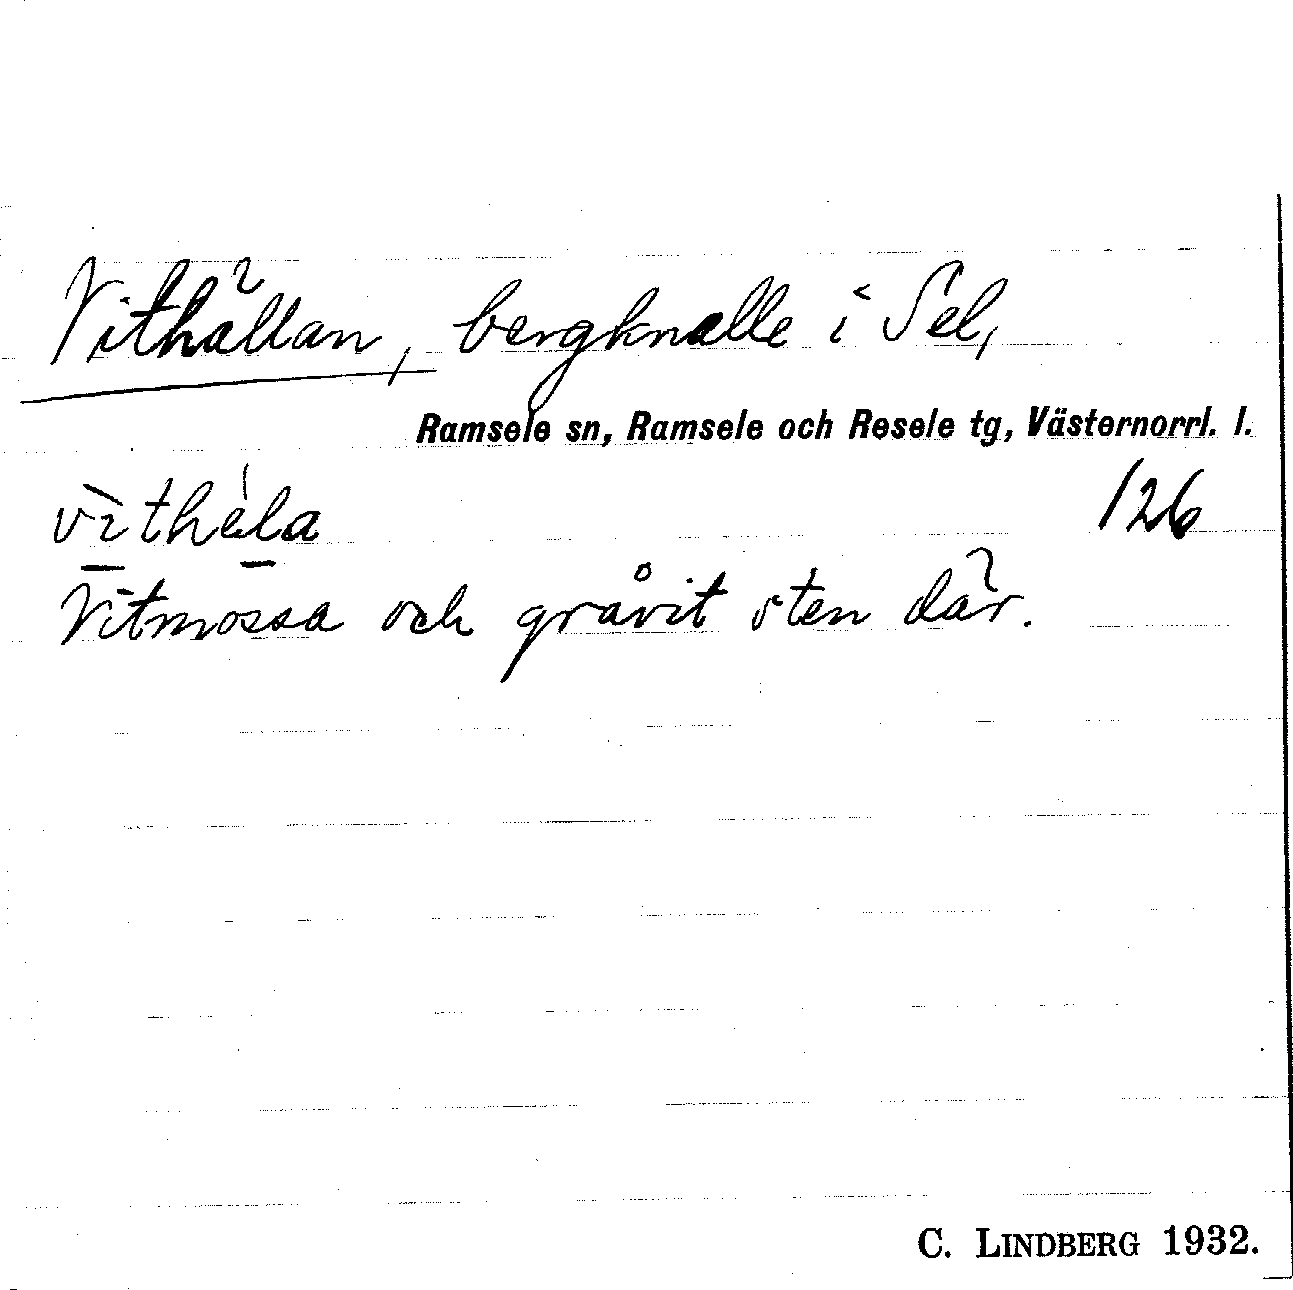 Vithällan, bergknalle i Sel,
Ramsele sn, Ramsele och Resele tg, Västernorrl. l.
vìthéla 126
Vitmossa och gråvit sten där.
C. LINDBERG 1932.